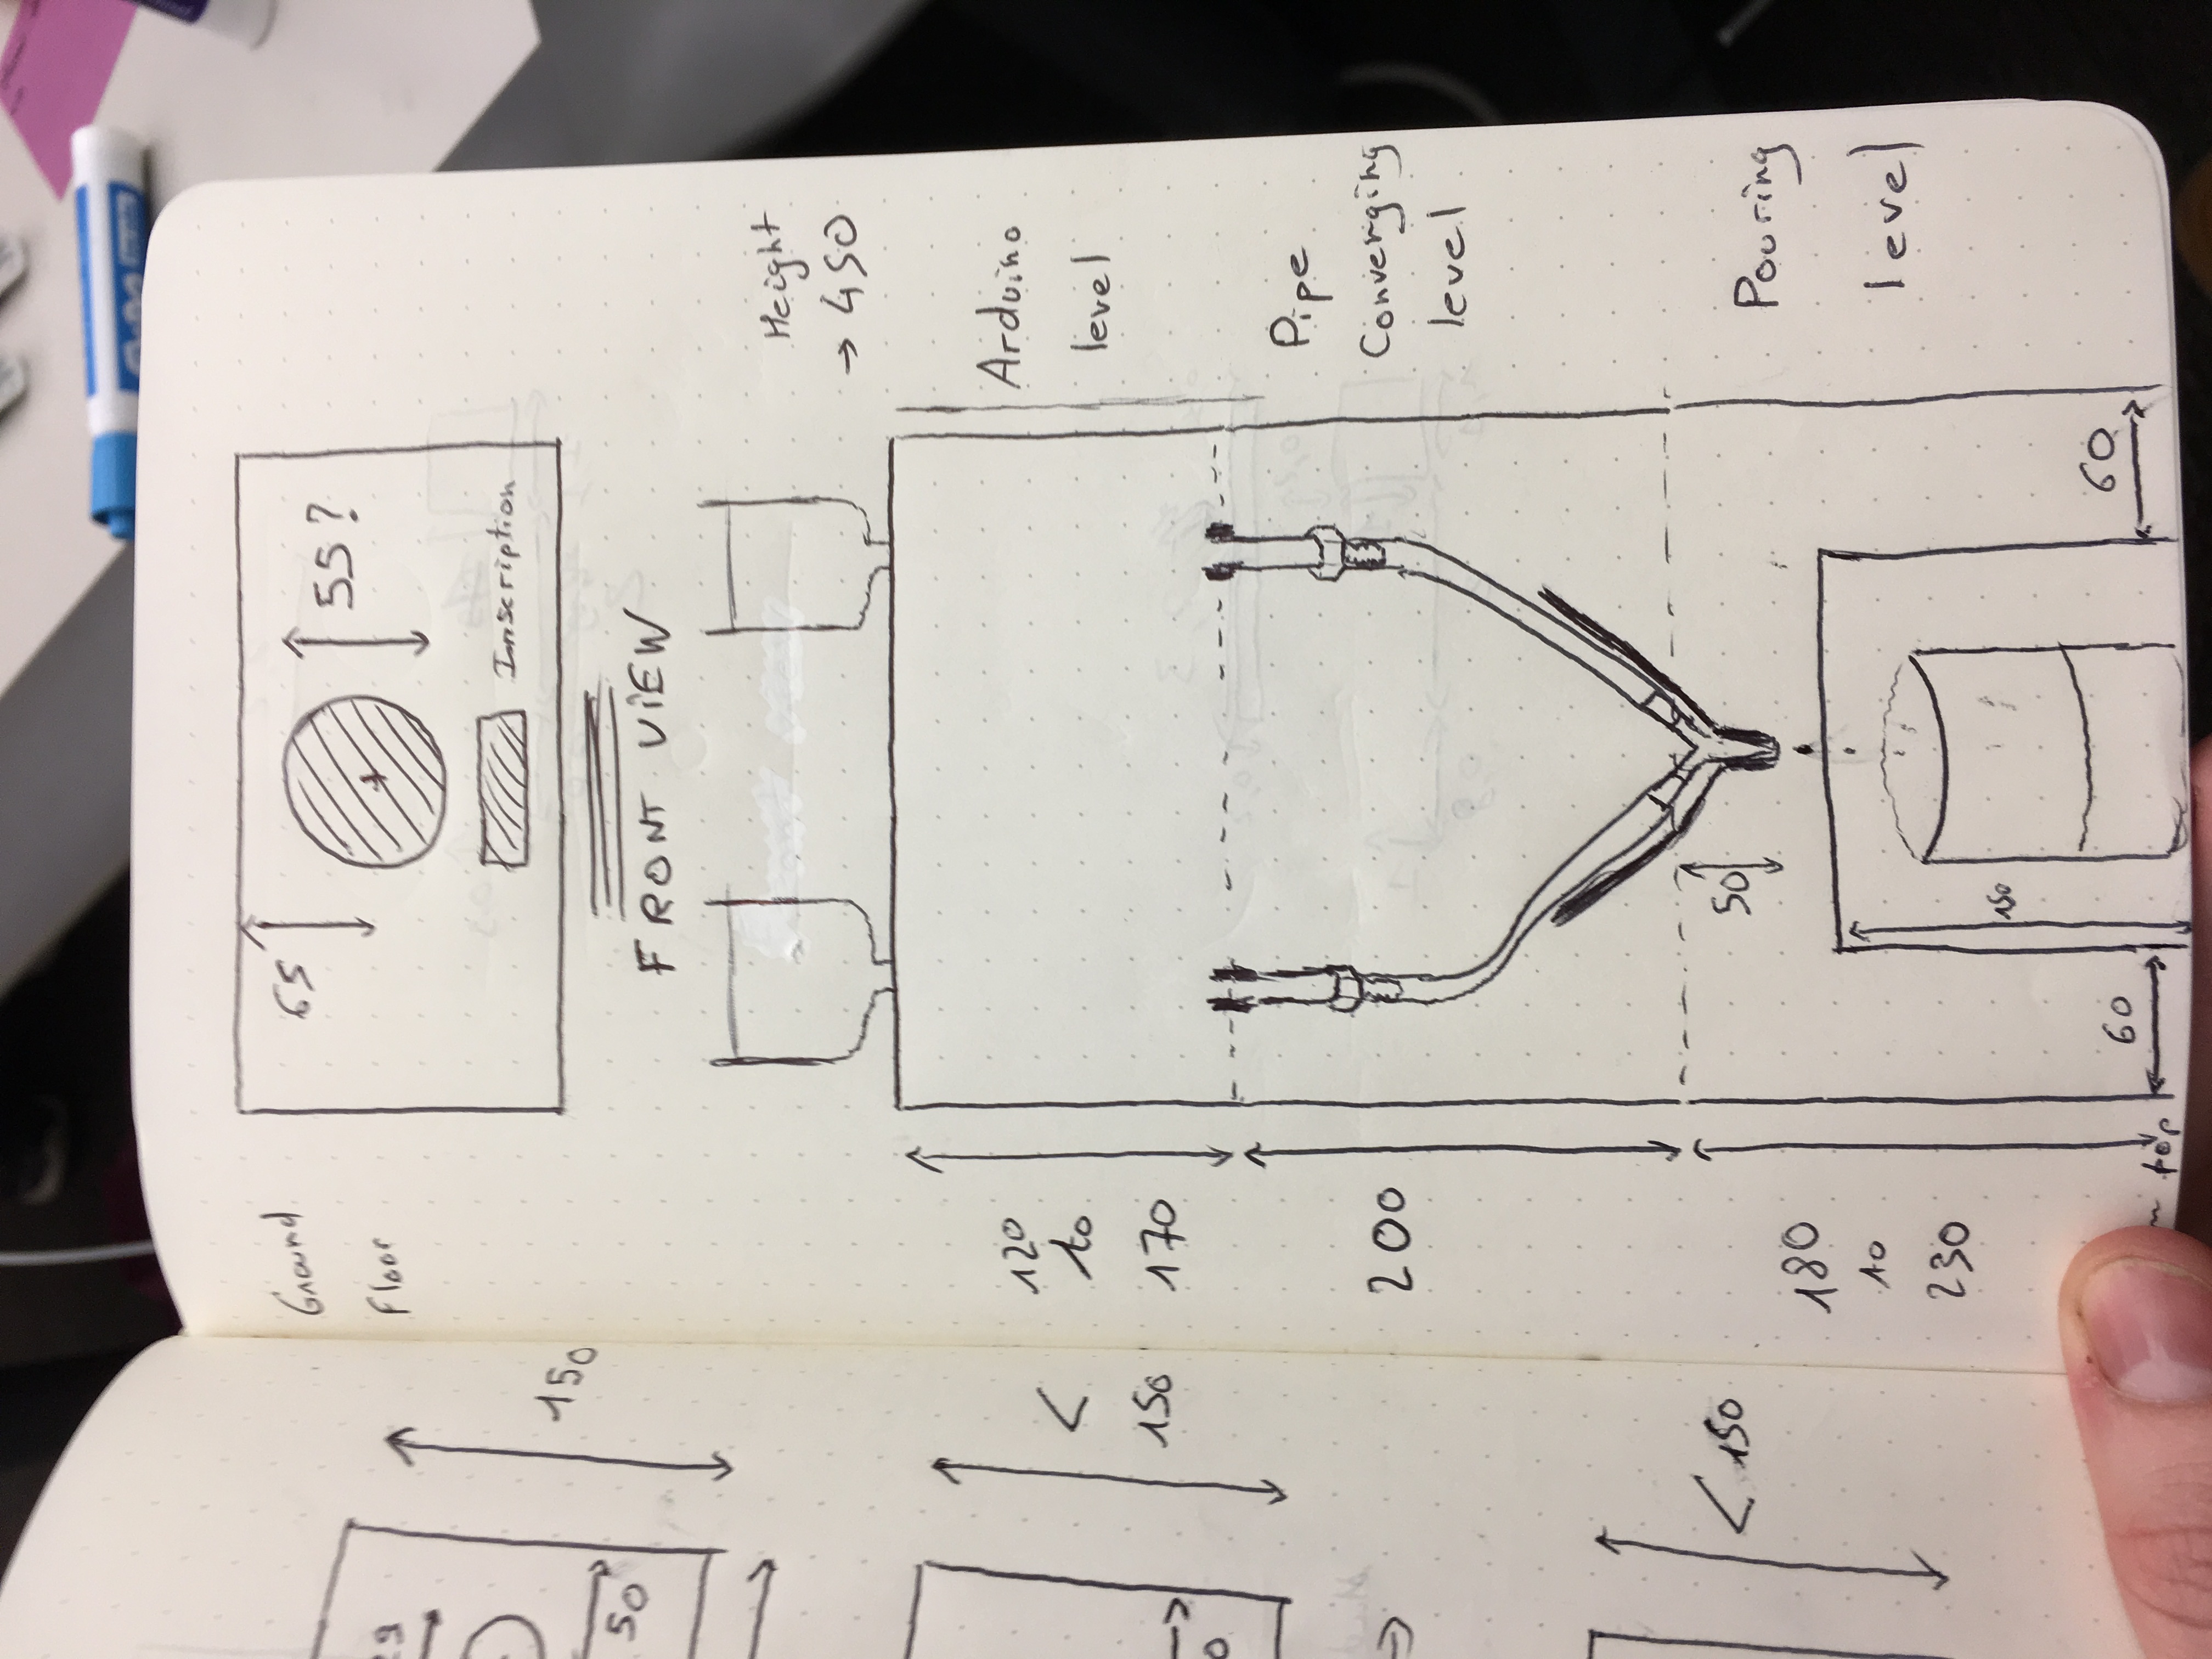 150
50
<
150
< 150
Ground
Floor
65
55?
Inscription
FRONT VIEW
Height
→ 450
120
to
170
Arduino
level
200
Pipe
Converging
level
50
180
to
230
Pouring
level
150
60
60
top